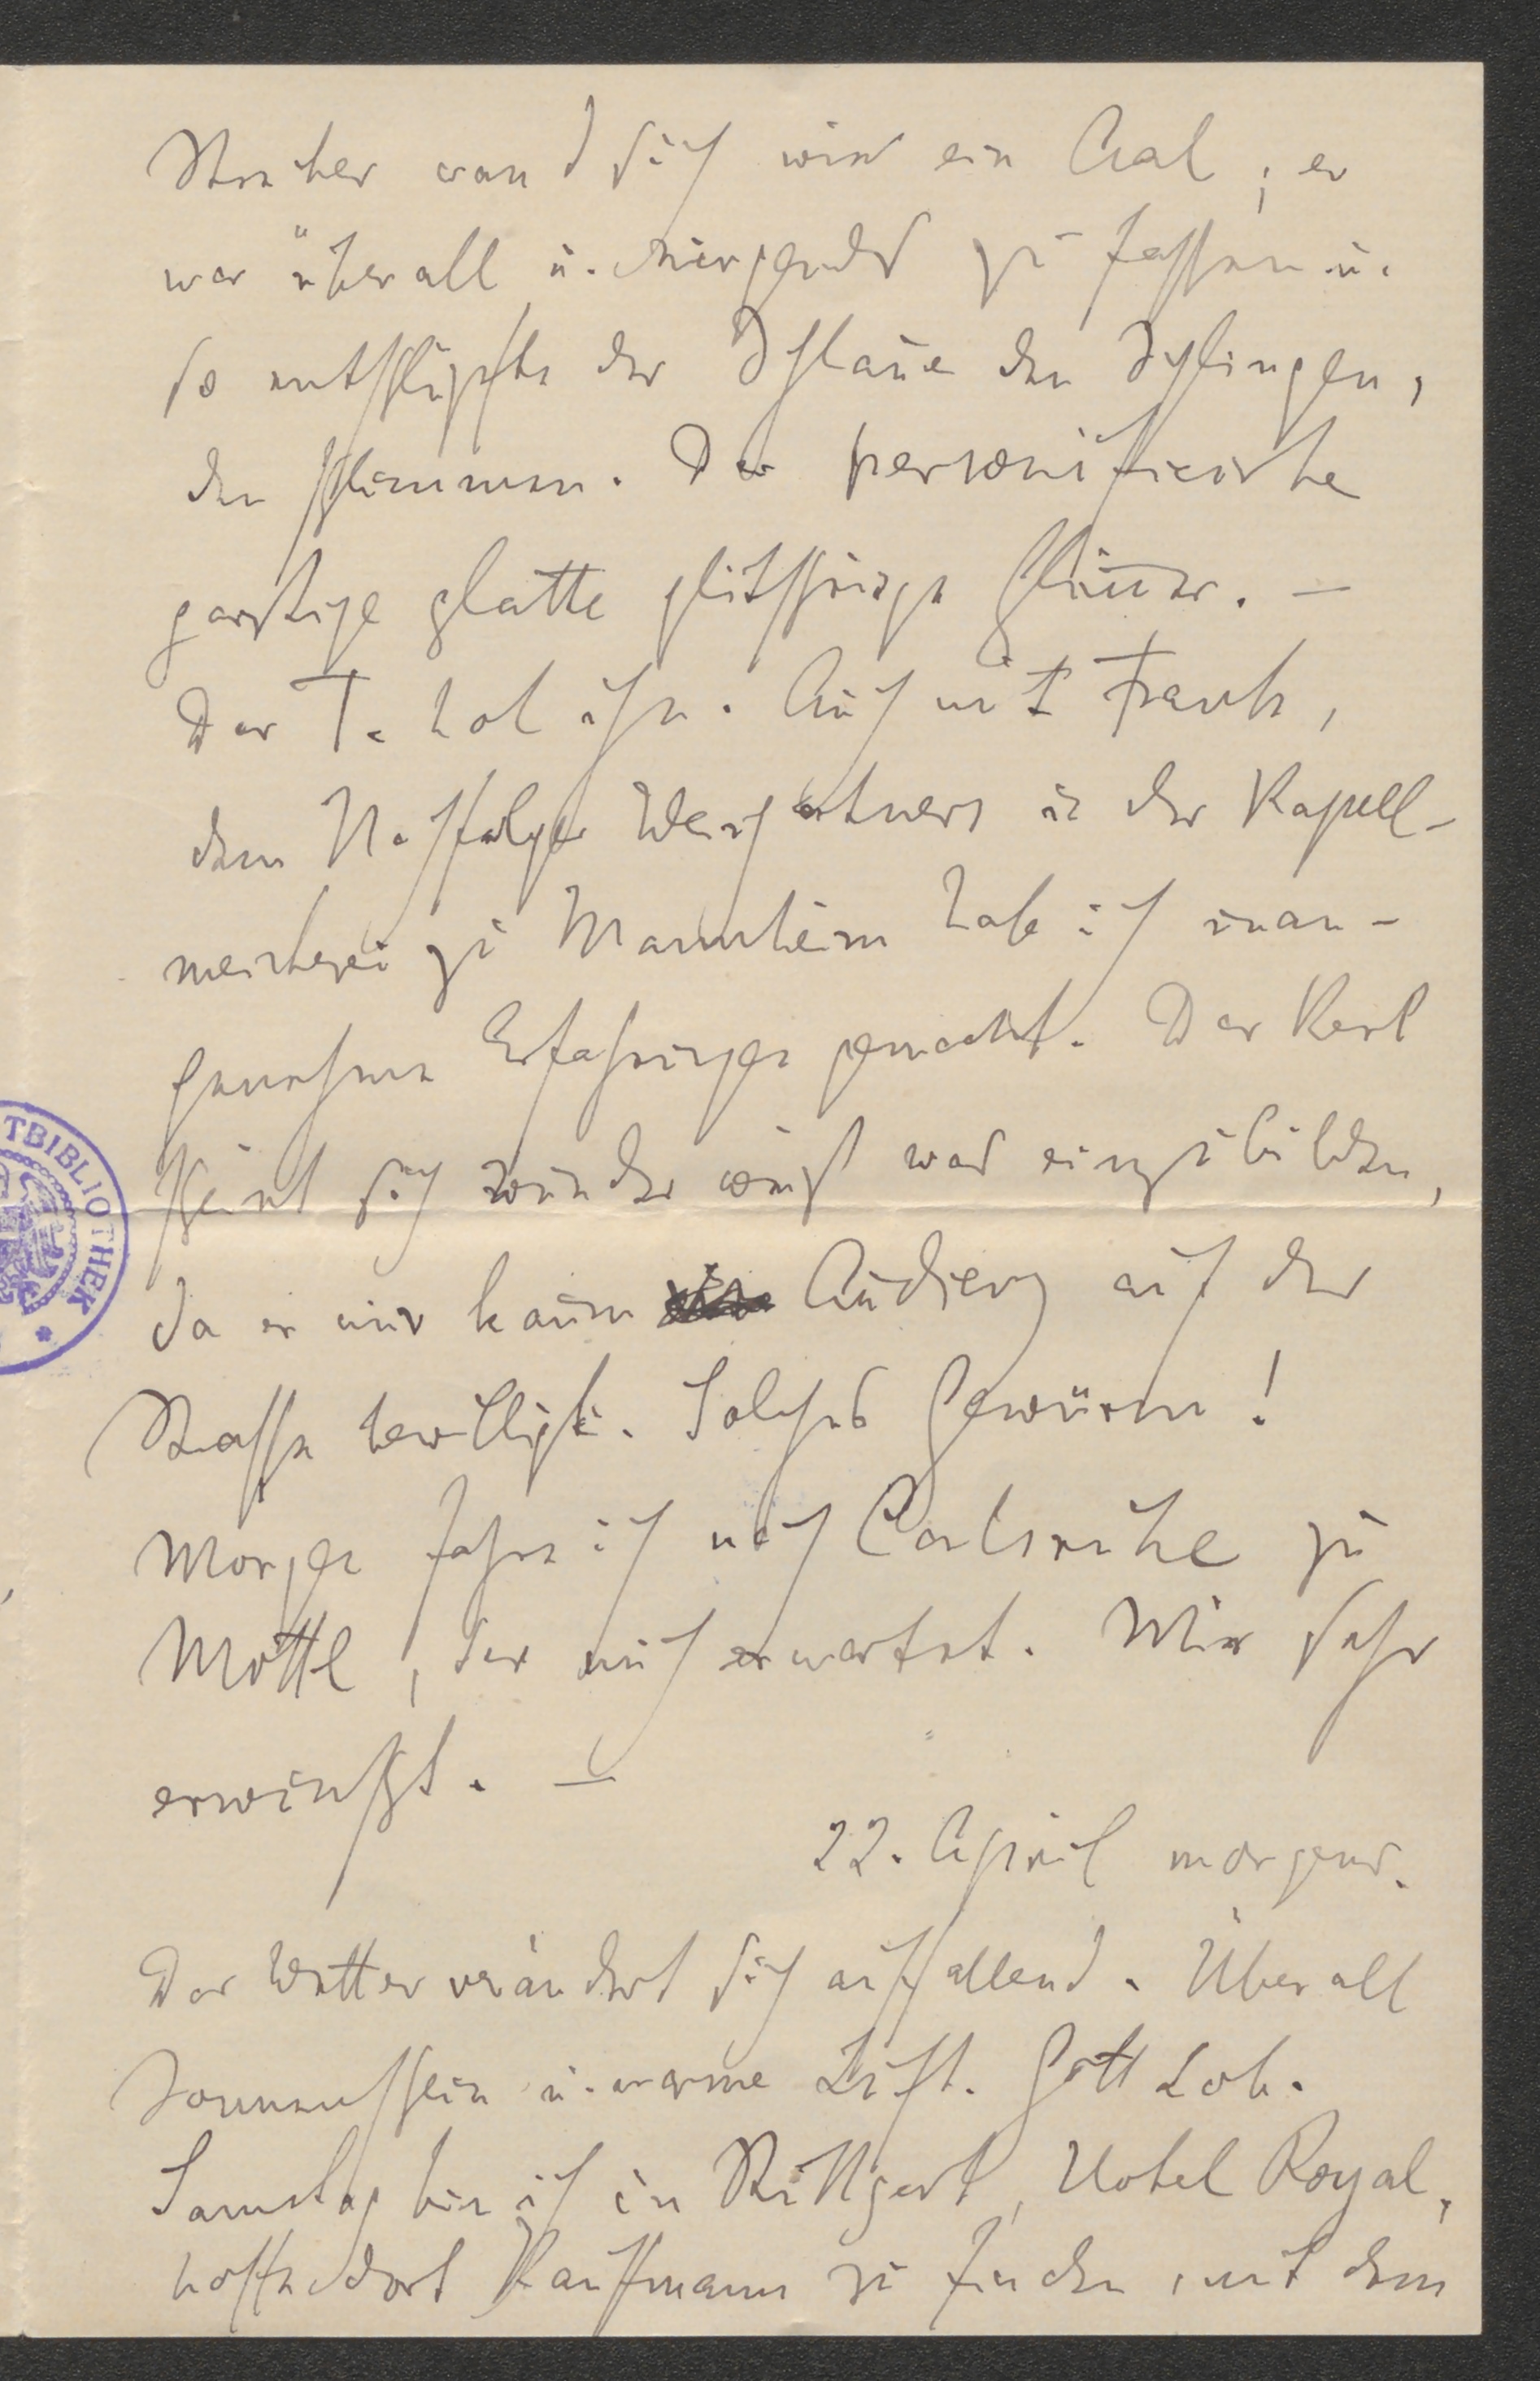 Strecker wand sich wie ein Aal; er
war überall u. nirgends zu fassen u.
so entschlüpfte der Schlaue den Schlingen,
den schlimmen. Der personificirte
garstige glatte glitschrige Glimmer. —
Der T. hol ihn. Auch mit Frank,
dem Nachfolger Weingartners in der Kapell-
meisterei zu Mannheim habe ich unan-
genehme Erfahrungen gemacht. Der Kerl
scheint sich wunder weiß was einzubilden,
da er mir kaum Audienz auf der
Strasse bewilligte. Solches Gewürm!
Morgen fahre ich nach Carlsruhe zu
Mottl, der mich erwartet. Mir sehr
erwünscht. —
22. April morgens.
Das Wetter verändert sich auffallend. Überall
Sonnenschein u. warme Luft. Gott Lob.
Samstag bin ich in Stuttgart, Hotel Royal,
hoffe dort Kauffmann zu finden, mit dem
TBIBLIOTHEK